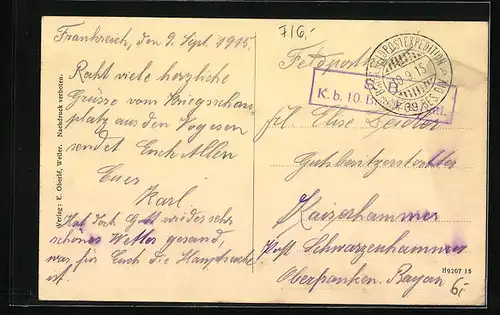 716,-
Frankreich, den 9. Sept. 1915.
Recht viele herzliche
Grüsse vom Kriegsschau-
platz aus den Vogesen
sendet Euch Allen
Euer
Karl
Hat doch Gott wieder sehr
schönes Wetter gesand,
was für Euch die Hauptsache
ist.
Verlag: E. Oberlé, Weiler. Nachdruck verboten.
Feldpost
FELDPOSTEXPEDITION
9.15
S. B.
K. b. 10.
39. RES. DIV.
Frl. Elise
Gutsbesitzerstochter
Kaiserhammer
Post Schwarzenhammer
Oberfranken. Bayern
H9207 15
6,-